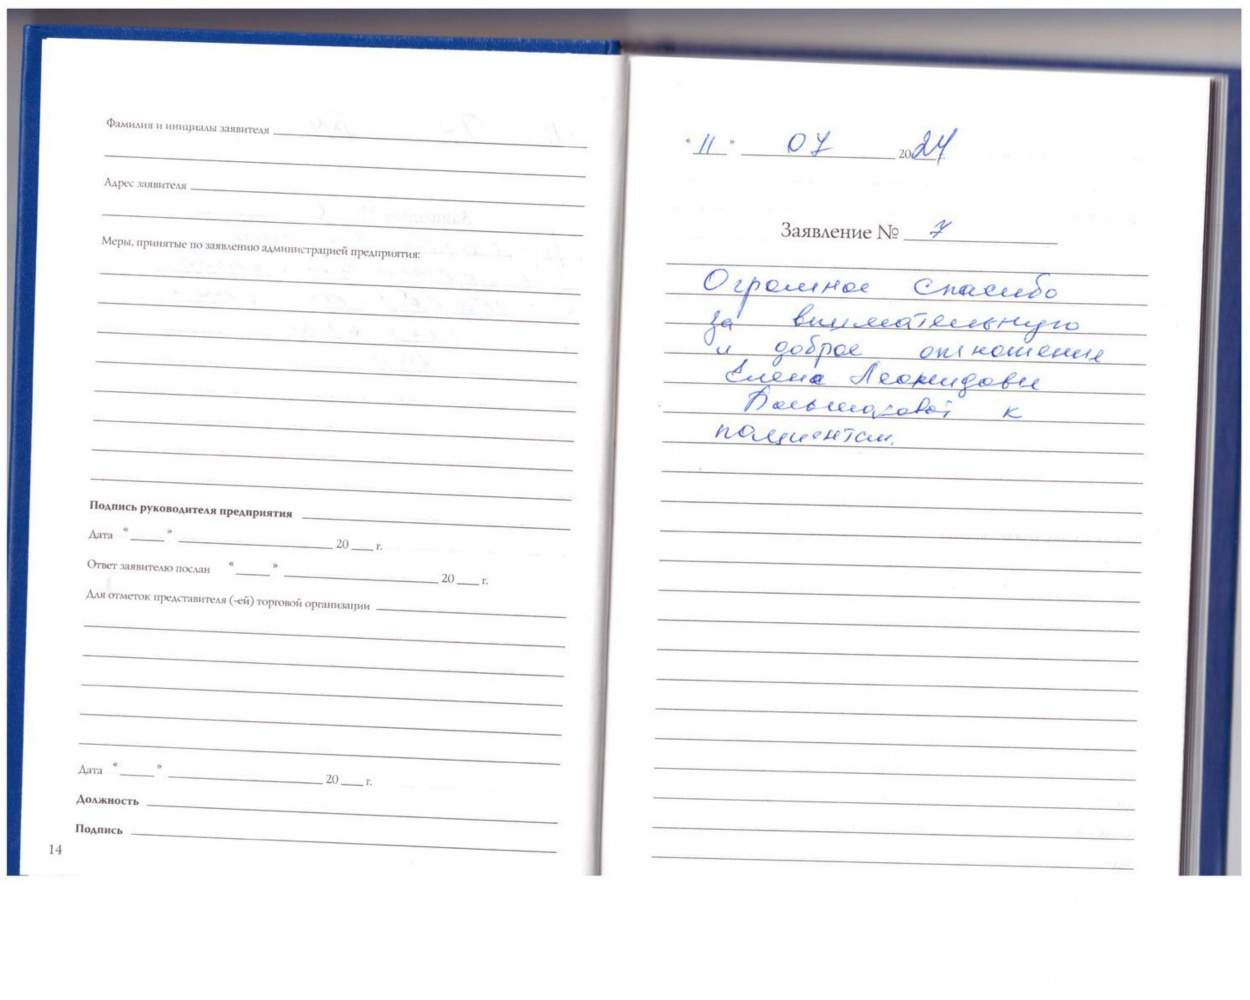 Фамилия и инициалы заявителя
Адрес заявителя
Меры, принятые по заявлению администрацией предприятия:
Подпись руководителя предприятия
Дата " " 20 г.
Ответ заявителю послан " " 20 г.
Для отметок представителя (-ей) торговой организации
Дата " " 20 г.
Должность
Подпись
14
" 11 " 07 2024
Заявление № 7
Огромное спасибо
за внимательную
и доброе отношение
Елена Леонидовы
к
пациентам.